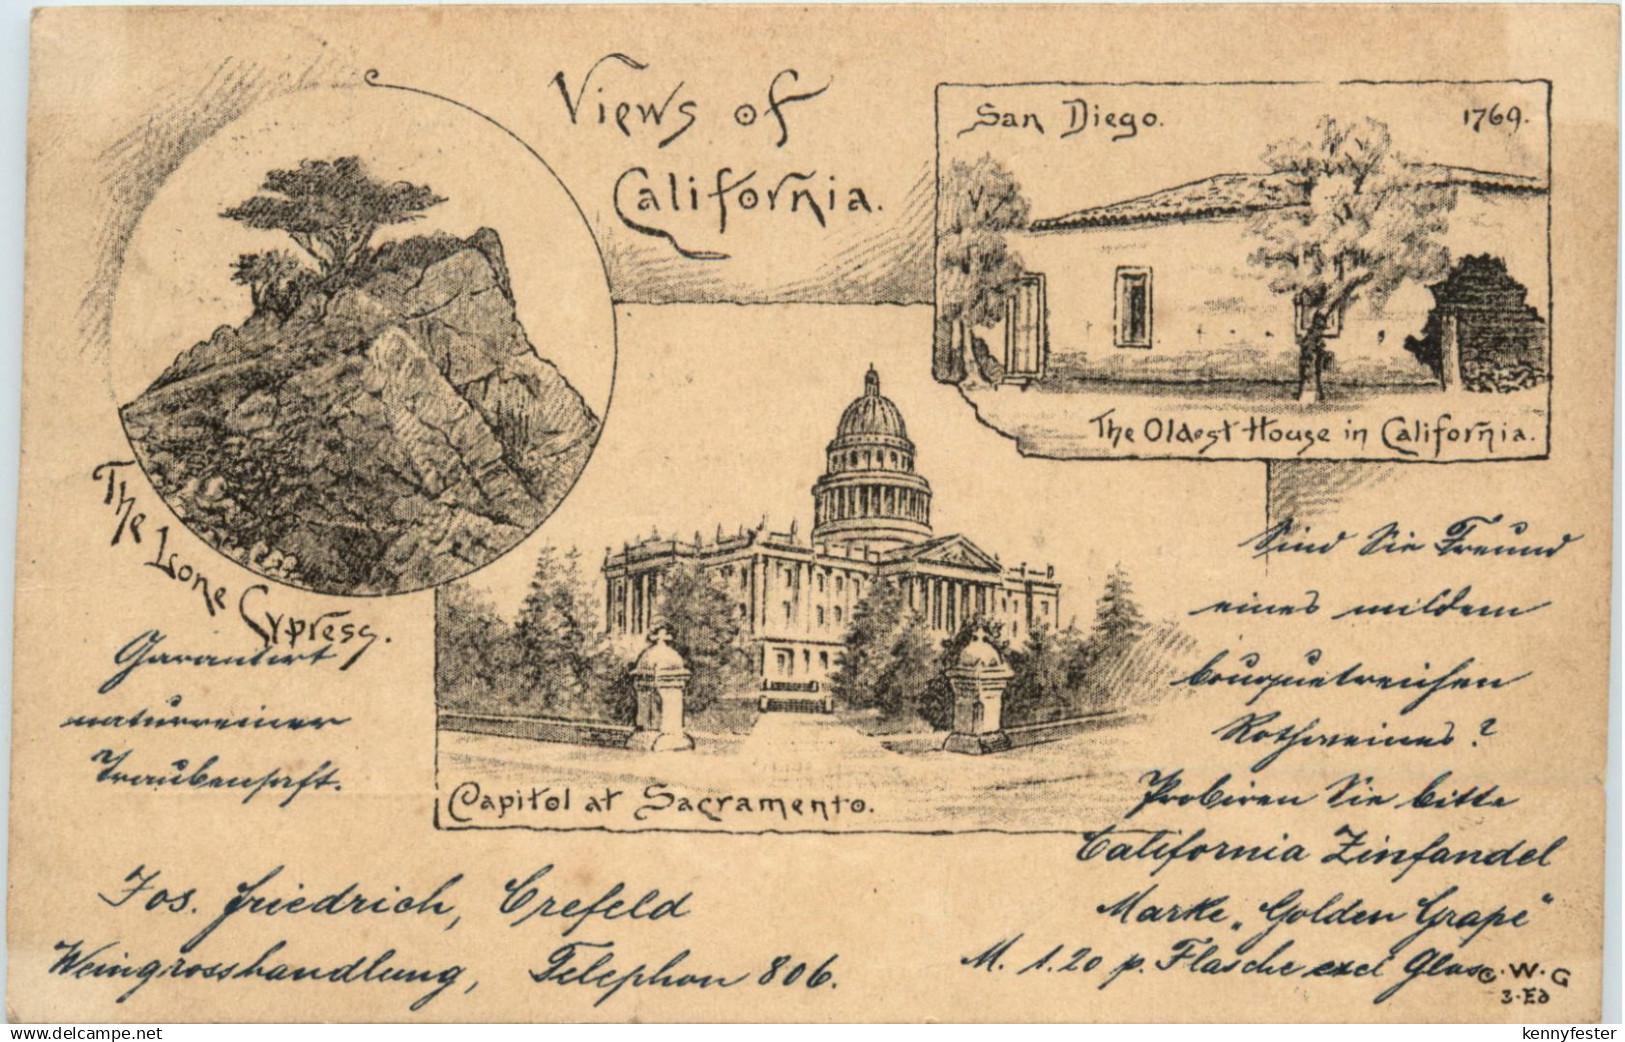 Views of
California.
San Diego. 1769.
The Oldest House in California.
The Lone Cypress.
Capitol at Sacramento.
Garantirt
naturreiner
Traubensaft.
Sind Sie Freund
eines mildem
bouquetreichen
Rothweines?
Probiren Sie bitte
California Zinfandel
Marke „Golden Grape"
M. 1.20 p. Flasche excl Glas
Jos. Friedrich, Crefeld
Weingrosshandlung, Telephon 806.
C.W.G
3-Ed
www.delcampe.net
kennyfester